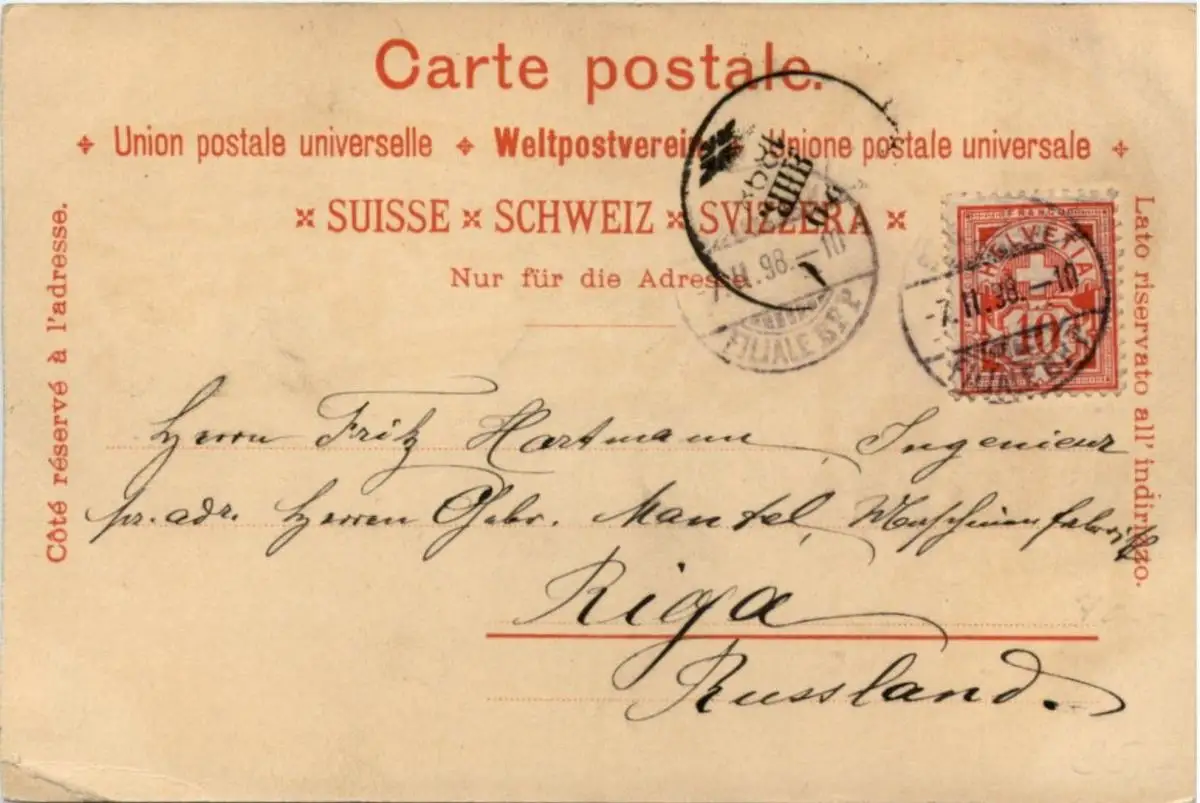 Carte postale.
Union postale universelle Weltpostverein Unione postale universale
SUISSE SCHWEIZ SVIZZERA
Nur für die Adresse
Côté réservé à l'adresse.
Lato riservato all' indirizzo.
FRANCO
HELVETIA
10
-7.II.98.-10
FILIALE
-7.II.98.-10
FILIALE
1898
Herrn Fritz Hartmann, Ingenieur
pr. adr. Herren Gebr. Mantel, Maschinenfabrik
Riga
Russland.